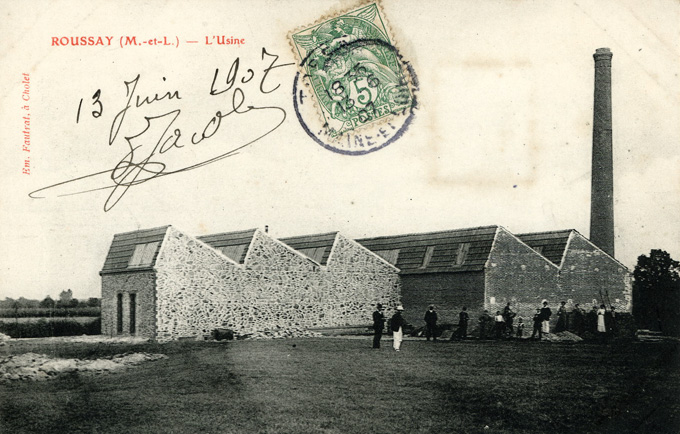 ROUSSAY (M.-et-L.) — L'Usine
13 Juin 1907
Jacob
Em. Fautrat, à Cholet
5
POSTES
MAINE-ET-LOIRE